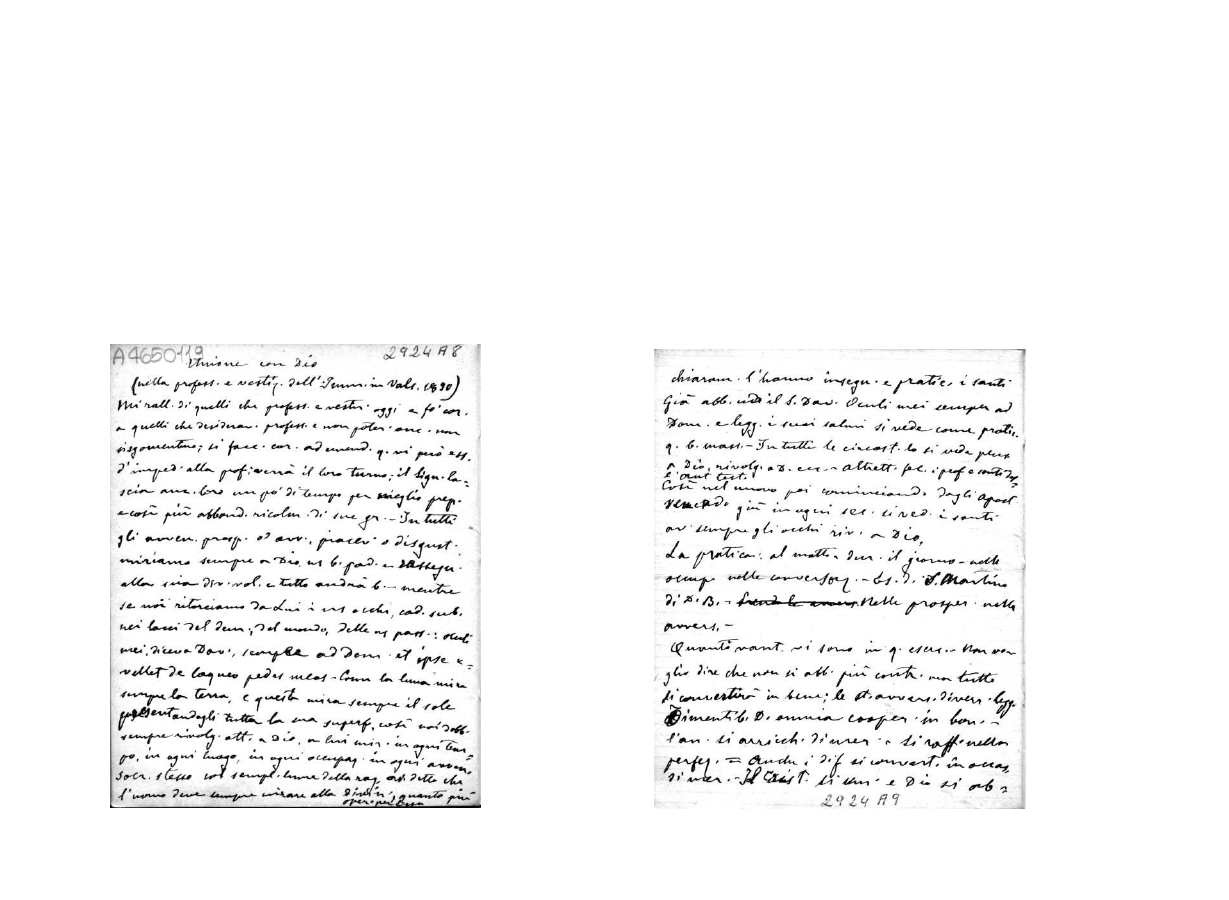 A4650119
2924 A8
Unione con Dio
(nella profess. e vestiz. dell' Imm. in Vals. 1890)
Mi rall. di quelli che profess. e vestir. oggi e fo cor.
a quelli che desideran. profess. e non poter. anc. non
sisgomentino; si facc. cor. ad emend. q. vi può ess.
d'imped. alla prof. verrà il loro turno; il Sign. la=
scia anc. loro un pò di tempo per meglio prep.
e così più abbond. ricolm. di sue gr. - In tutti
gli avven. prosp. od avv., piacev. o disgust.
miriamo sempre a Dio, ns b. pad. e rassegn.
alla sua div. vol. e tutto andrà b. - mentre
se noi ritorciamo da Lui i ns occhi, cad. sub.
nei lacci del dem., del mondo, delle ns pass.: oculi
mei, diceva Dav., semper ad Dom. et ipse e=
vellet de laqueo pedes meos - Come la luna mira
sempre la terra, e questa mira sempre il sole
presentandogli tutta la sua superf. così noi dobb.
sempre rivolg. att. a Dio, a lui mir. in ogni tem=
po, in ogni luogo, in ogni occupaz. in ogni avven.
Socr. stesso col sempl. lume della rag. ha detto che
l'uomo deve sempre mirare alla Divin., quanto più
chiaram. l'hanno insegn. e pratic. i santi
Già abb. udit. il S. Dav. Oculi mei semper ad
Dom. e legg. i suoi salmi si vede come pratic.
q. b. mass. - In tutte le circost. lo si vede pens.
a Dio, rivolg. a D. ecc. - Altrett. fec. i prof. e santi
Così nel nuovo poi cominciando dagli Apost.
venendo giù in ogni sec. si ved. i santi
av. sempre gli occhi riv. a Dio,
La pratica: al matt. - dur. il giorno - nelle
occup. nelle conversaz. - Es. di S. Martino
di D. B. - Nelle prosper. nelle
avvers. -
Quanti vant. vi sono in q. eserc. - Non vo=
glio dire che non si abb. più contr. ma tutto
si convertirà in bene; le st. avvers. divers. legg.
Diligentib. D. omnia cooper. in bon. -
l'an. si arricch. di mer. e si raff. nella
perfez. = Anche i dif. si convert. in occas.
di mer. - Il Crist. si um. e Dio si ab=
2924 A9